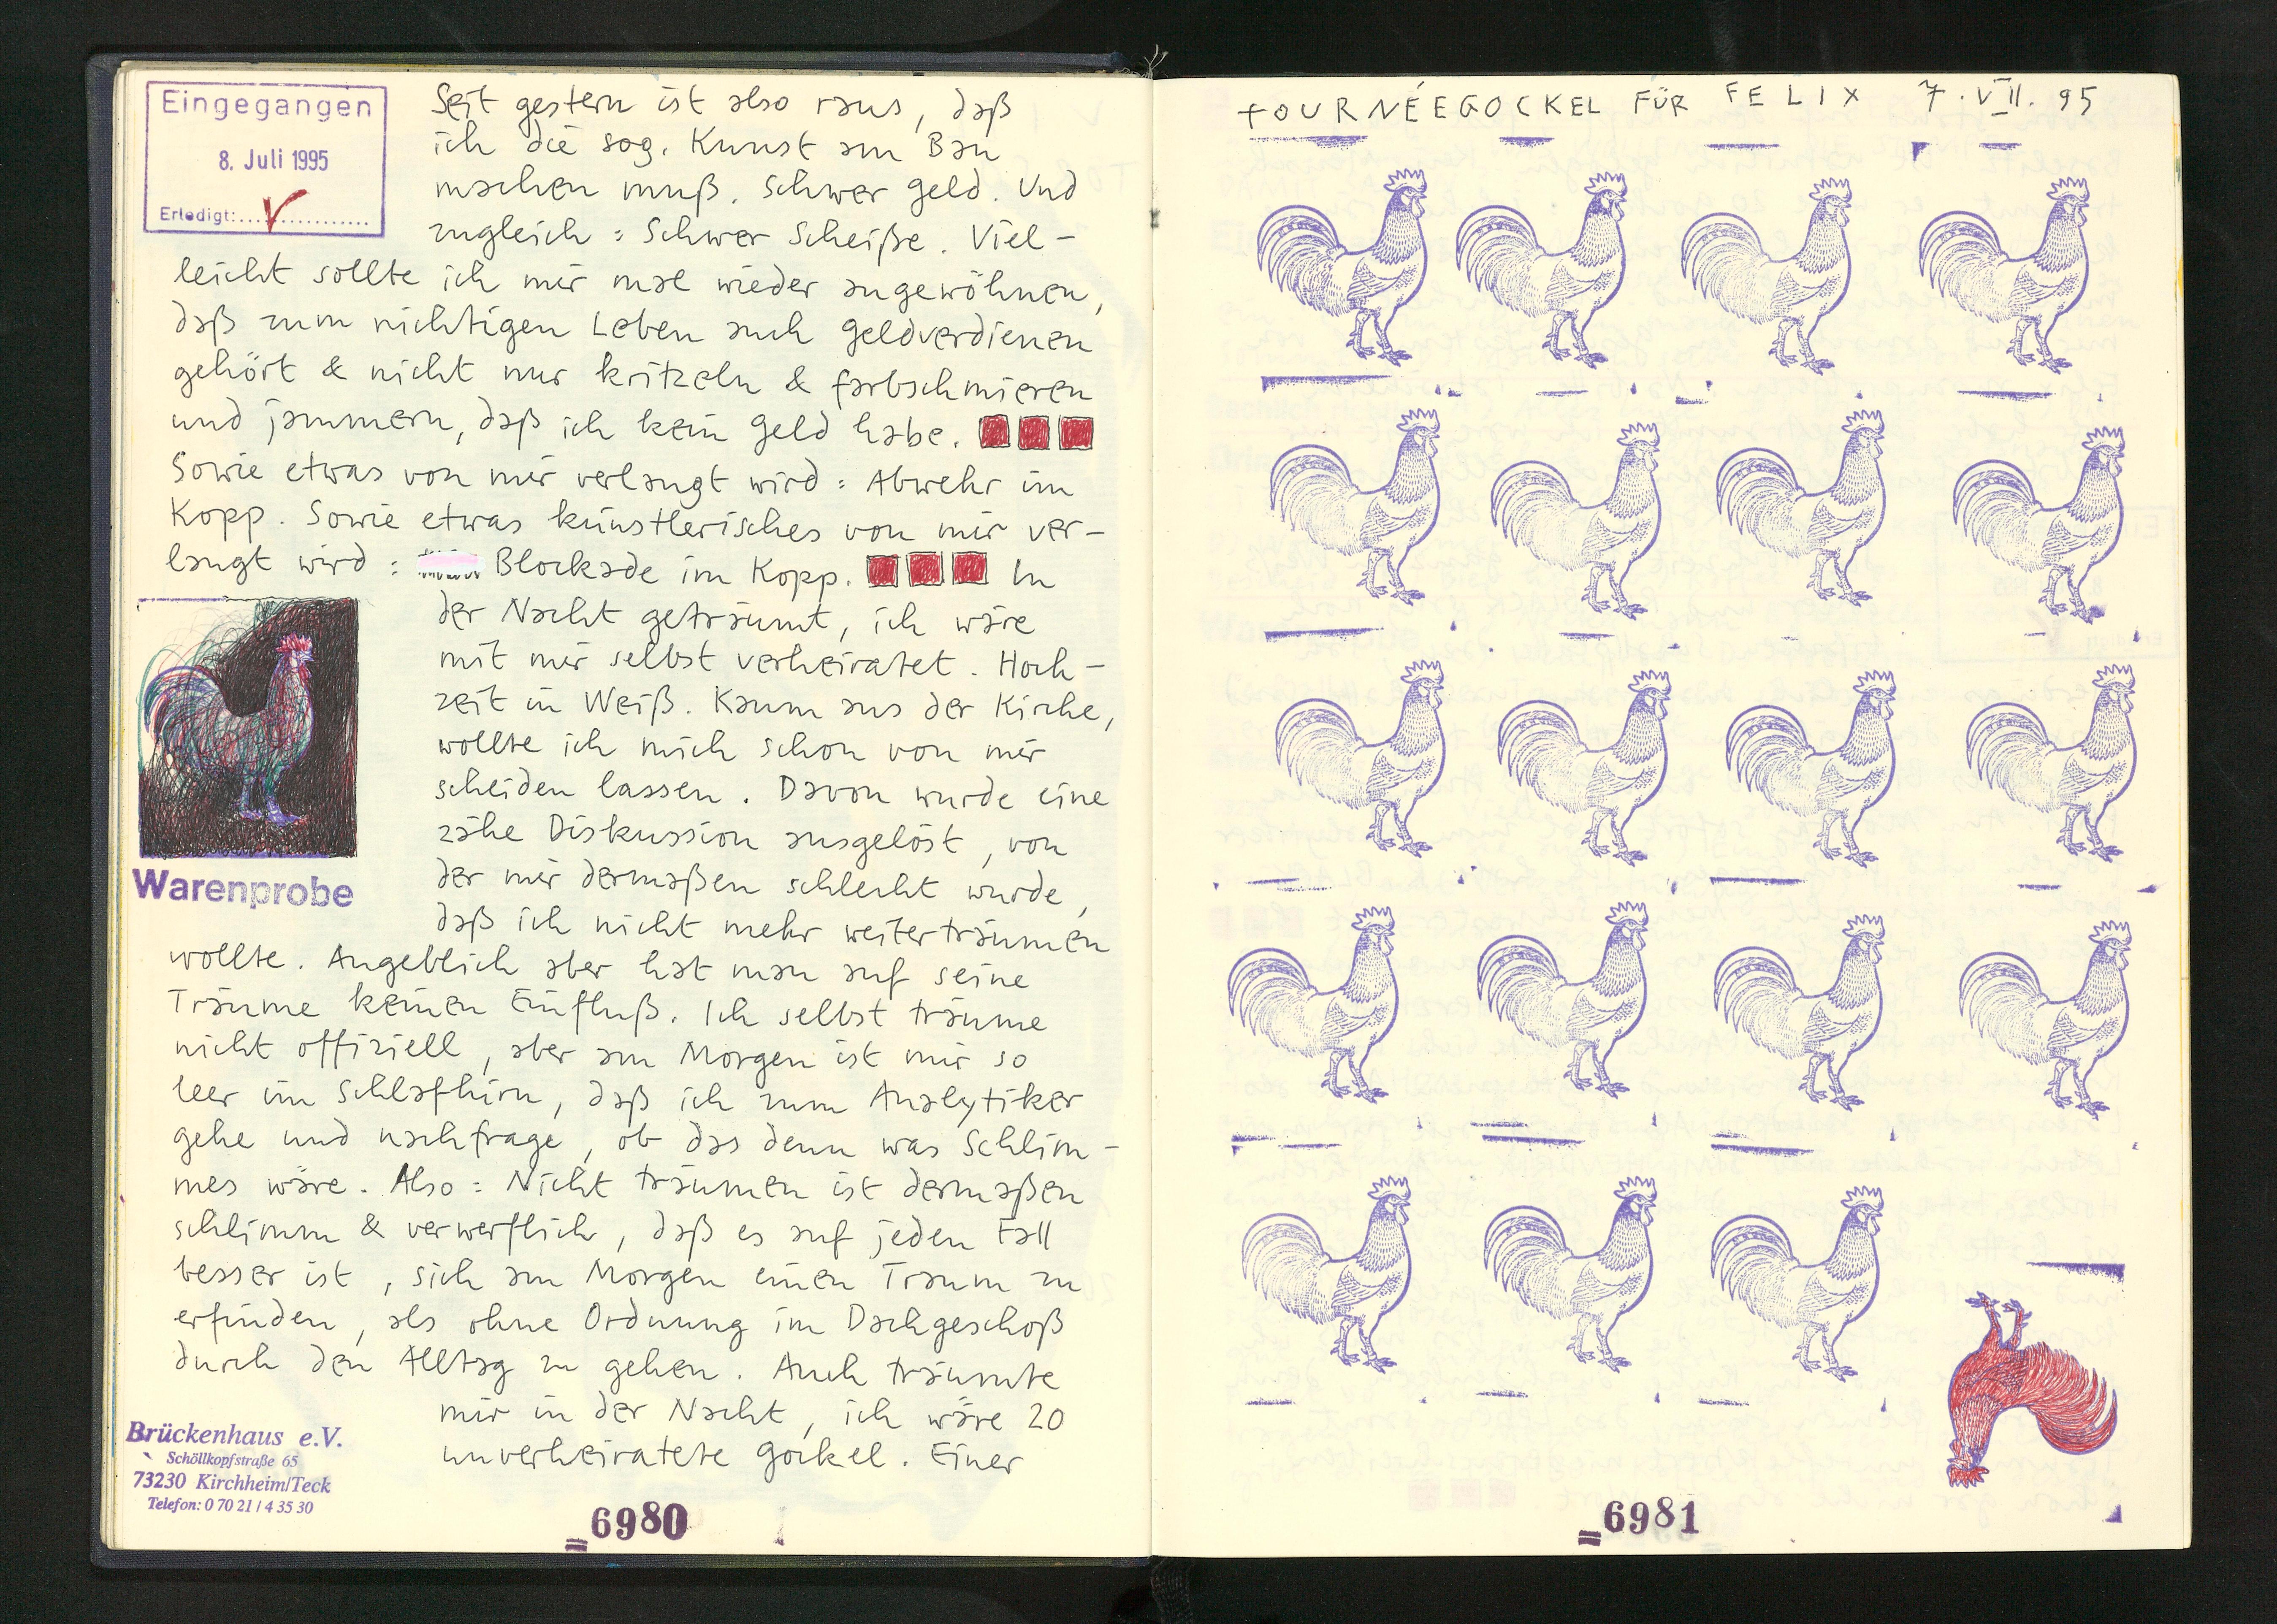 Eingegangen
8. Juli 1995
Erledigt:
Seit gestern ist also raus, daß
ich die sog. Kunst am Bau
machen muß. Schwer Geld. Und
zugleich: Schwer Scheiße. Viel-
leicht sollte ich mir mal wieder angewöhnen,
daß zum richtigen Leben auch Geldverdienen
gehört & nicht nur kritzeln & farbschmieren
und jammern, daß ich kein Geld habe.
Sowie etwas von mir verlangt wird: Abwehr im
Kopp. Sowie etwas künstlerisches von mir ver-
langt wird: Blockade im Kopp. In
der Nacht geträumt, ich wäre
mit mir selbst verheiratet. Hoch-
zeit in Weiß. Kaum aus der Kirche,
wollte ich mich schon von mir
scheiden lassen. Davon wurde eine
zähe Diskussion ausgelöst, von
der mir dermaßen schlecht wurde,
daß ich nicht mehr weiterträumen
wollte. Angeblich aber hat man auf seine
Träume keinen Einfluß. Ich selbst träume
nicht offiziell, aber am Morgen ist mir so
leer im Schlafhirn, daß ich zum Analytiker
gehe und nachfrage, ob das denn was Schlim-
mes wäre. Also: Nicht träumen ist dermaßen
schlimm & verwerflich, daß es auf jeden Fall
besser ist, sich am Morgen einen Traum zu
erfinden, als ohne Ordnung im Dachgeschoß
durch den Alltag zu gehen. Auch träumte
mir in der Nacht, ich wäre 20
unverheiratete Gockel. Einer
Warenprobe
Brückenhaus e.V.
Schöllkopfstraße 65
73230 Kirchheim/Teck
Telefon: 0 70 21 / 4 35 30
6980
TOURNÉEGOCKEL FÜR FELIX 7.VII.95
6981